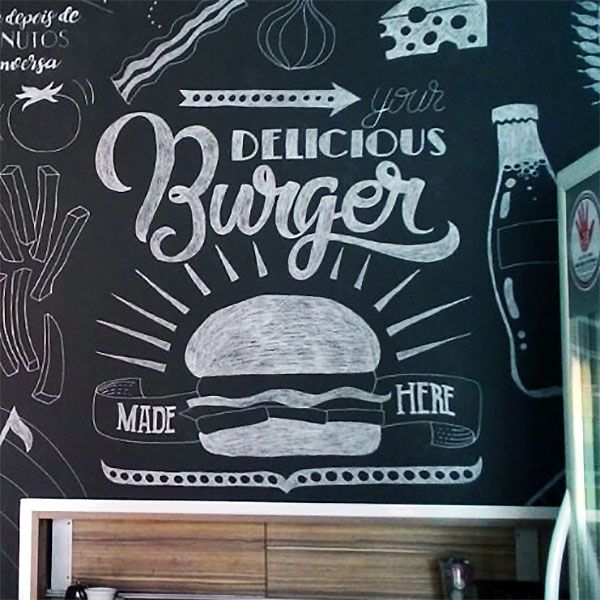 depois de
NUTOS
nversa
your
DELICIOUS
Burger
MADE HERE